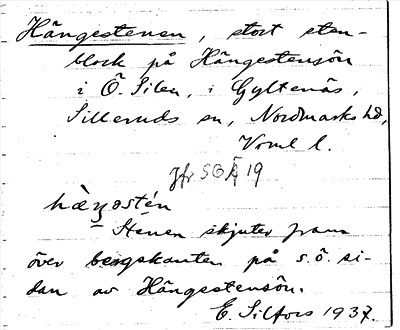 Hängestenen, stort sten-
block på Hängestensön
i Ö. Silen, i Gyltenäs,
Silleruds sn, Nordmarks hd,
Vrml l.
Jfr SOÄ 19
hàŋ̫əstén
Stenen skjuter fram
över bergskanten på s.ö. si-
dan av Hängestensön.
E. Silfors 1937.